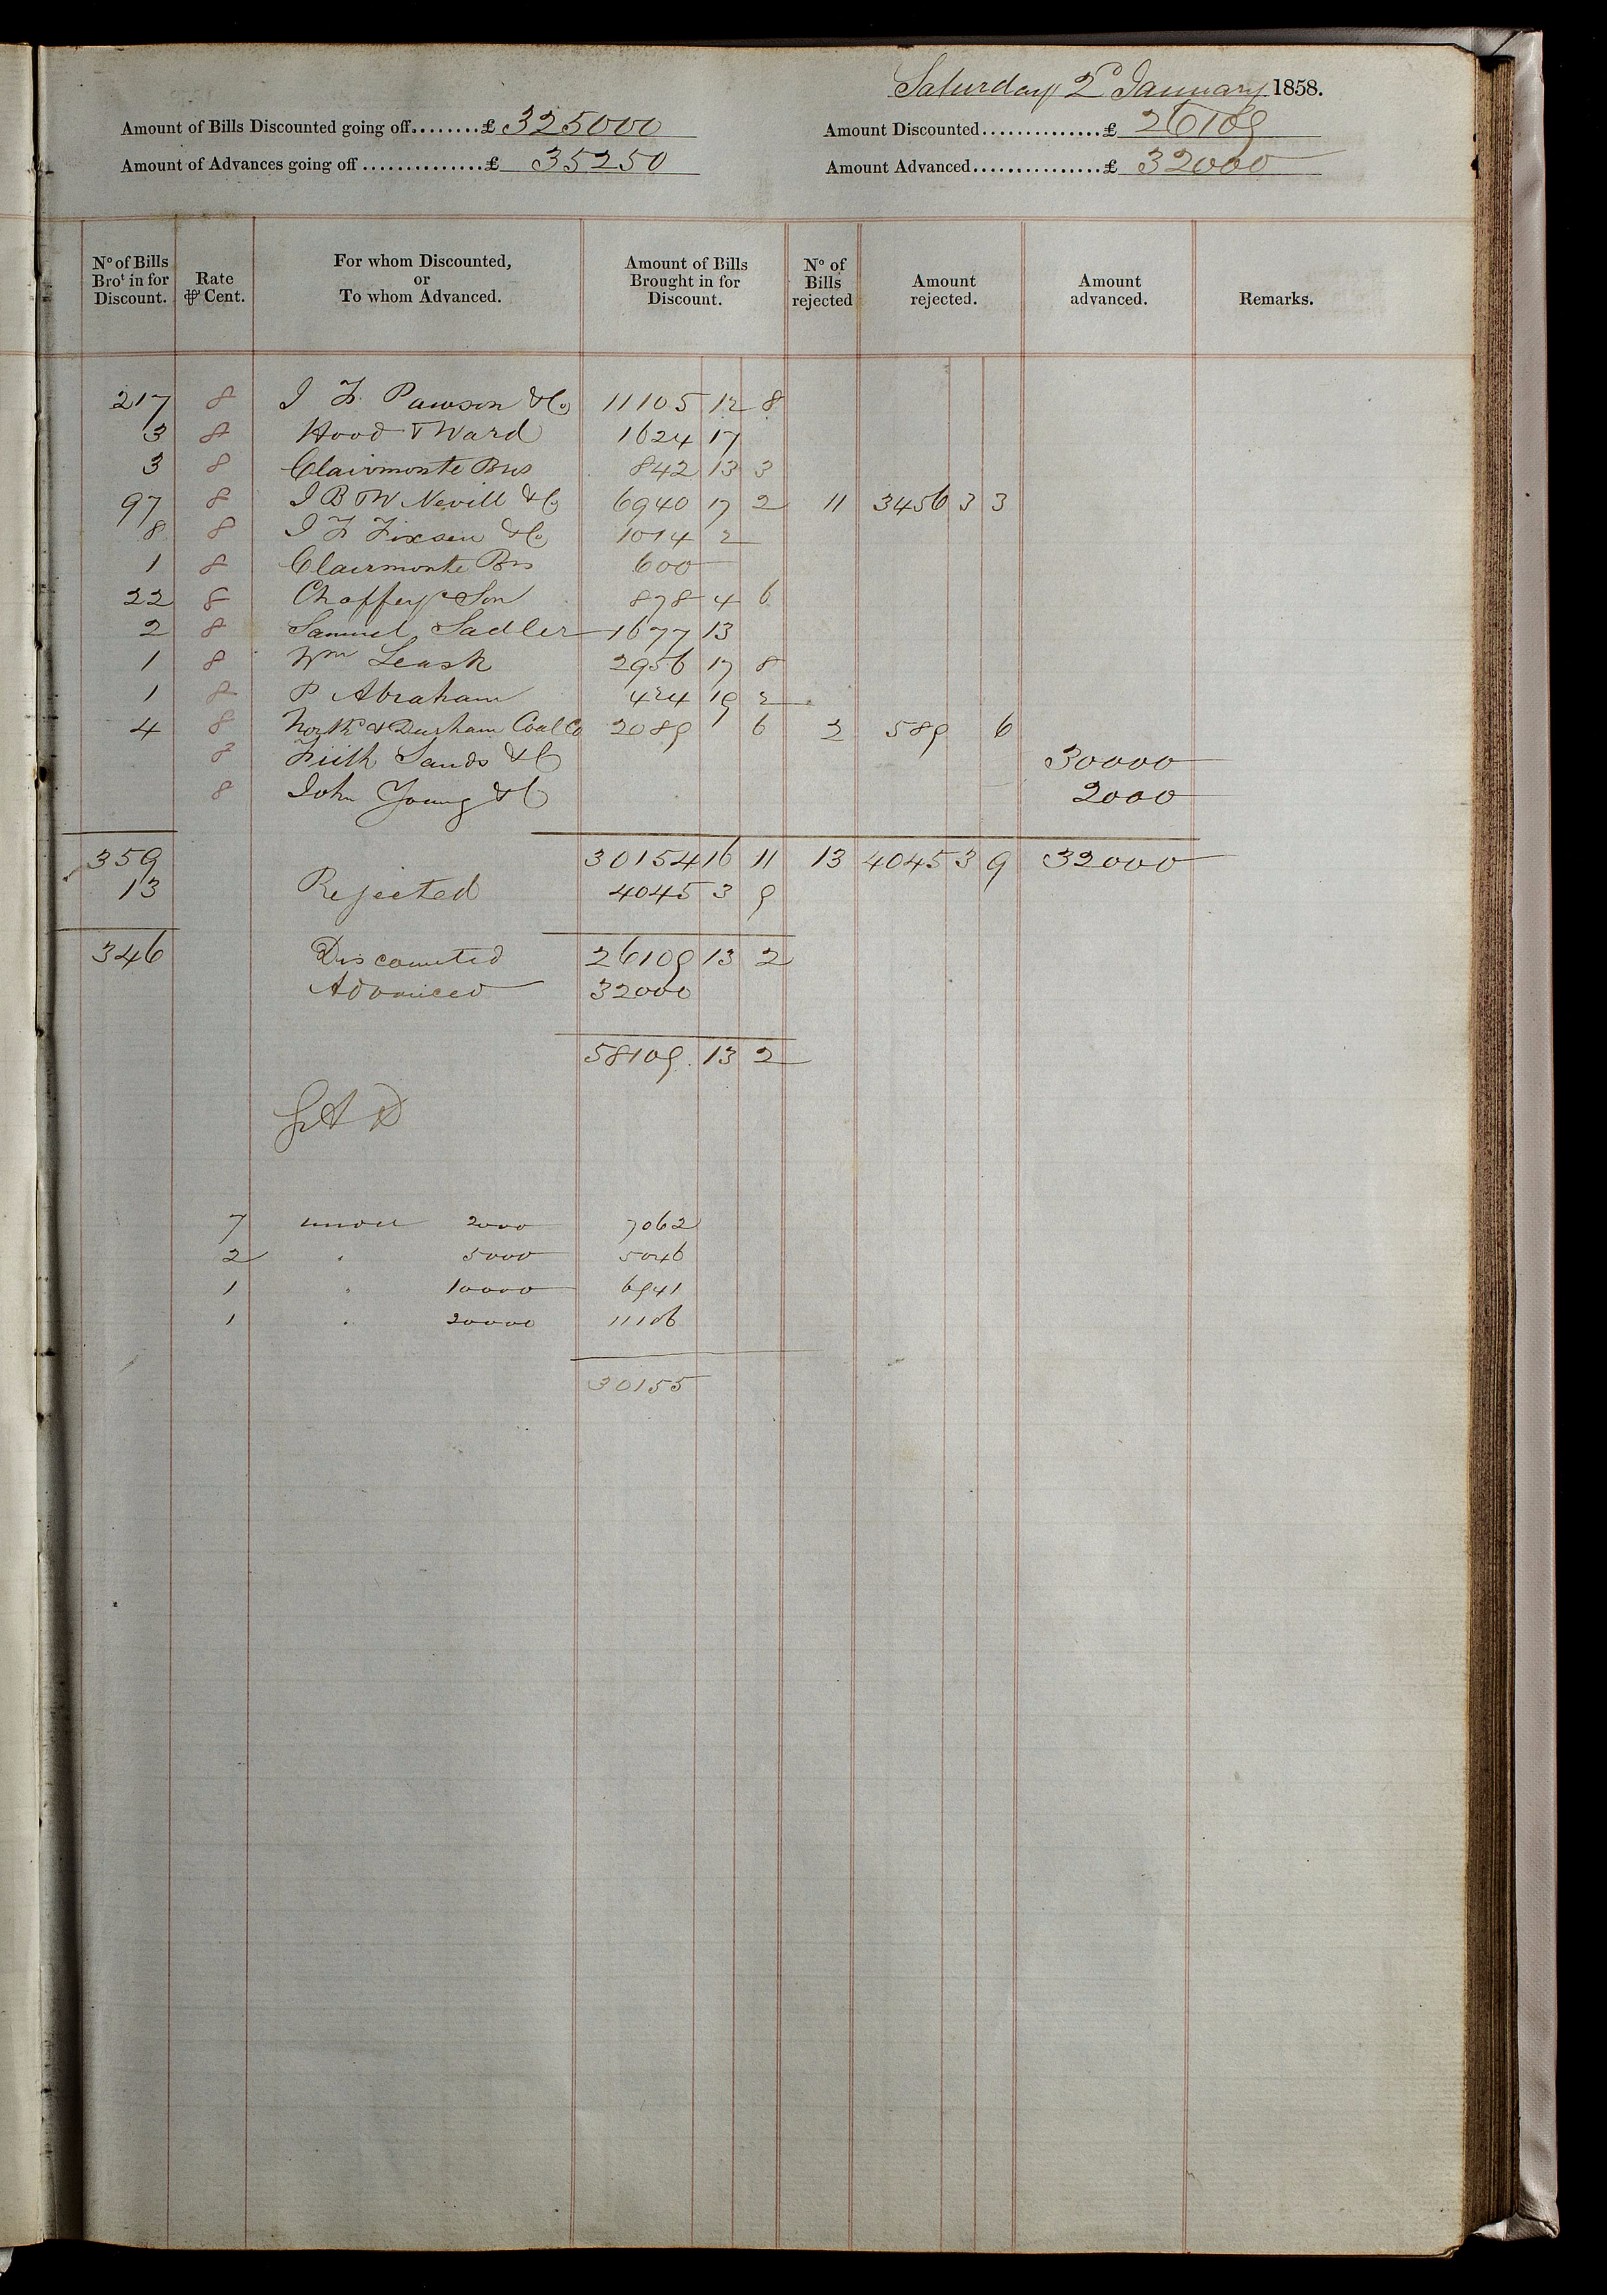 Saturday 2d January 1858.
Amount of Bills Discounted going off........£ 325000 Amount Discounted..............£ 26109
Amount of Advances going off ..............£ 35250 Amount Advanced...............£ 32000
No of Bills Brot in for Discount. Rate ⅌ Cent. For whom Discounted, or To whom Advanced. Amount of Bills Brought in for Discount. No of Bills rejected Amount rejected. Amount advanced. Remarks.
217 8 J F Pawson & Co 11105 12 8
3 8 Hood & Ward 1624 17
3 8 Clairmonte Bros 842 13 3
97 8 J B & W Nevill & Co 6940 17 2 11 3456 3 3
8 8 J F Fixsen & Co 1014 2
1 8 Clairmonte Bros 600
22 8 Chaffey & Son 878 4 6
2 8 Samuel Sadler 1677 13
1 8 Wm Leask 2956 17 8
1 8 P Abraham 424 19 2
4 8 North & Durham Coal Co 2089 6 2 589 6
8 Frith Sands & Co 30000
8 John Young & Co 2000
359 30154 16 11 13 4045 3 9 32000
13 Rejected 4045 3 9
346 Discounted 26109 13 2
Advanced 32000
58109 13 2
7 under 2000 7062
2 " 5000 5046
1 " 10000 6941
1 " 20000 11106
30155